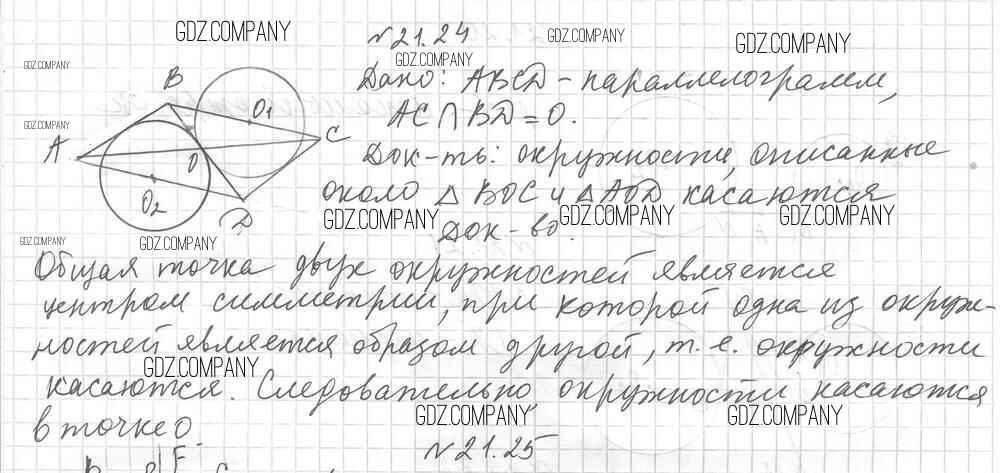 GDZ.COMPANY
N 21.24
GDZ.COMPANY
GDZ.COMPANY
GDZ.COMPANY
GDZ.COMPANY
B
Дано: ABCD - параллелограмм,
O1
AC ∩ BD = O.
GDZ.COMPANY
A
C
O
Док-ть: окружности, описанные
O2
около △ BOC и △ AOD касаются
D
GDZ.COMPANY
GDZ.COMPANY
GDZ.COMPANY
Док-во.
GDZ.COMPANY
GDZ.COMPANY
Общая точка двух окружностей является
центром симметрии, при которой одна из окруж-
ностей является образом другой, т. е. окружности
GDZ.COMPANY
касаются. Следовательно окружности касаются
в точке O.
GDZ.COMPANY
GDZ.COMPANY
N 21.25